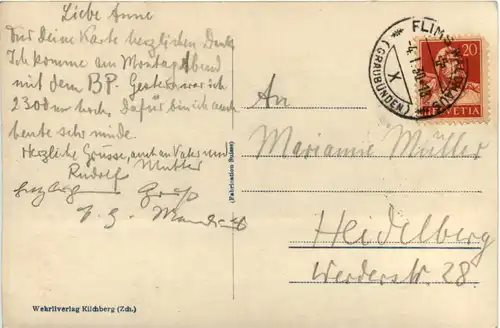 Liebe Anne
Für deine Karte herzlichen Dank
Ich komme am Montag Abend
mit dem B.P. Gestern war ich
2300 m hoch. Dafür bin ich auch
heute sehr müde.
Herzliche Grüsse, auch an Vater und
Mutter
Rudolf
Gruß
An
Marianne Müller
Heidelberg
Werderstr. 28.
FLIMS
(GRAUBÜNDEN)
X
20
HELVETIA
(Fabrication Suisse)
Wehrliverlag Kilchberg (Zch.)